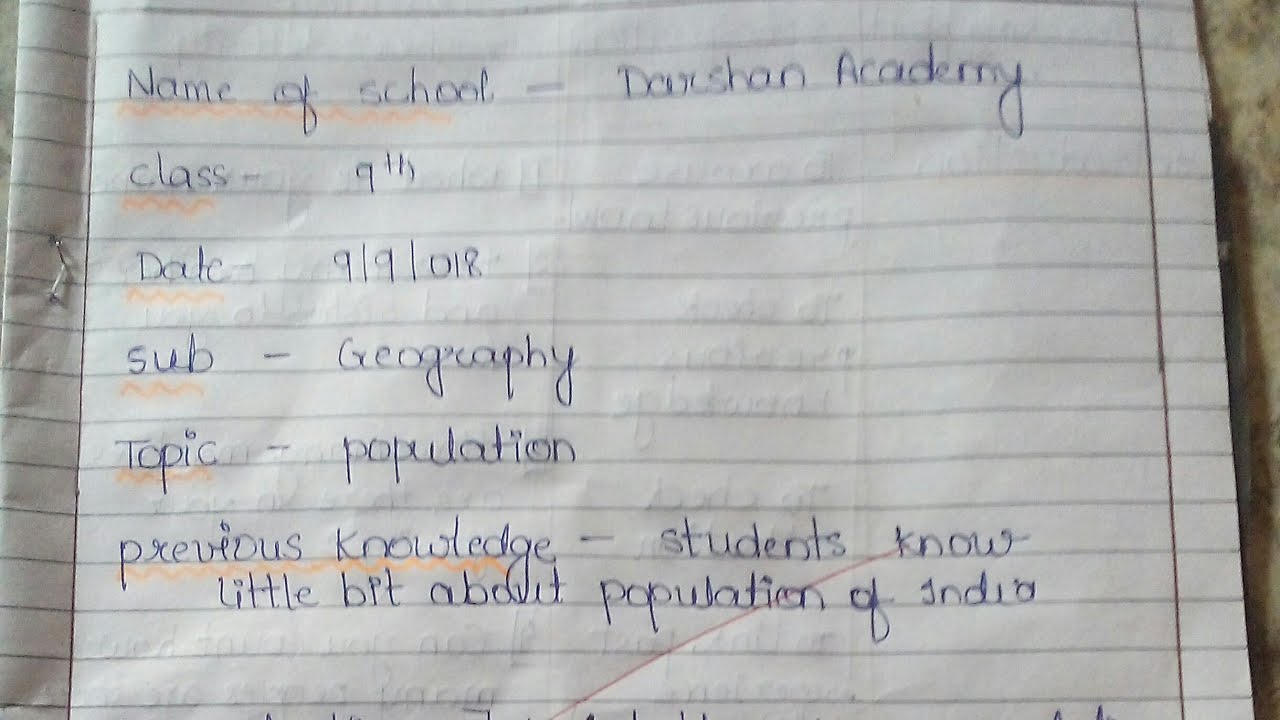 Name of school - Darshan Academy
class- 9th
Date- 9/9/018
sub - Geography
Topic - population
previous knowledge - students know
little bit about population of India